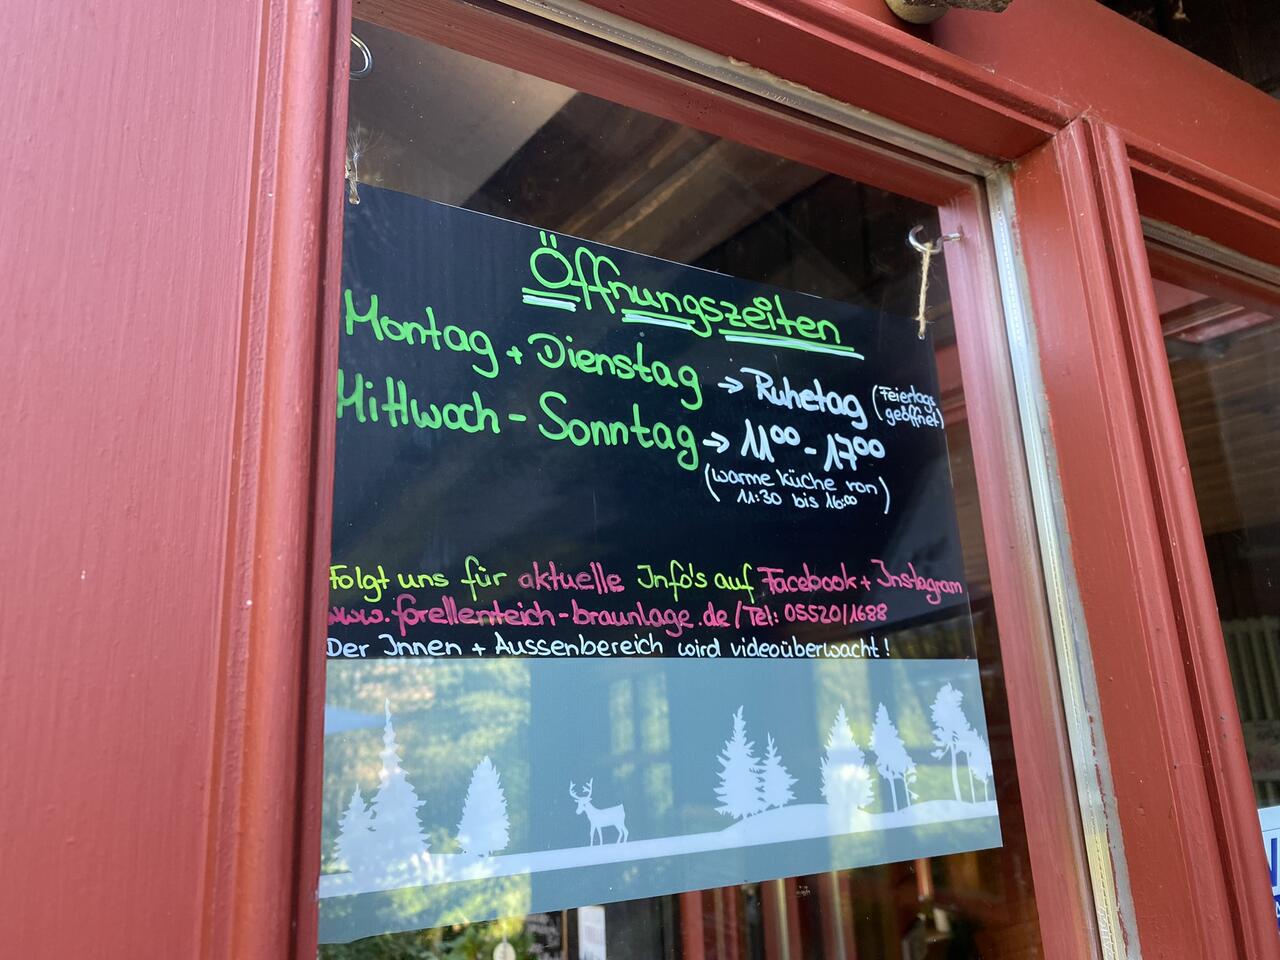 Öffnungszeiten
Montag + Dienstag → Ruhetag (Feiertags geöffnet)
Mittwoch - Sonntag → 11⁰⁰ - 17⁰⁰
(warme Küche von
11:30 bis 16:00)
Folgt uns für aktuelle Info's auf Facebook + Instagram
www.forellenteich-braunlage.de/Tel: 05520/1688
Der Innen + Aussenbereich wird videoüberwacht!